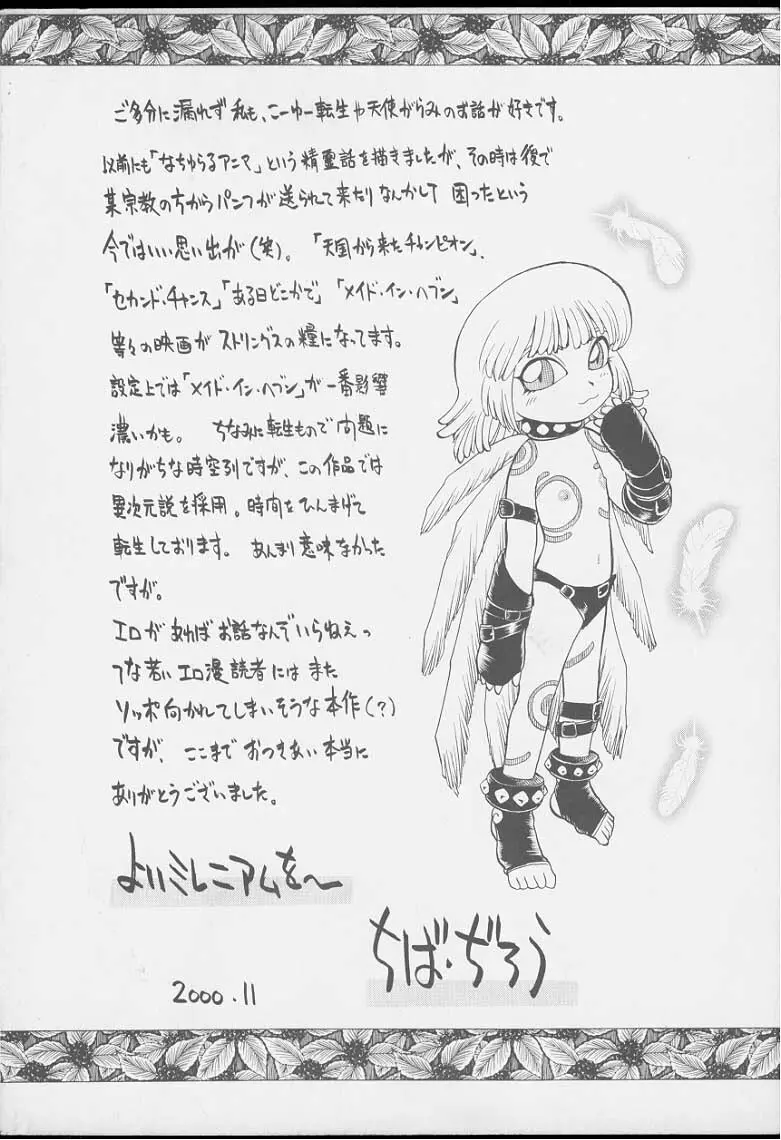 ご多分に漏れず私も、こーゆー転生や天使がらみのお話が好きです。
以前にも「なちゅらるアニマ」という精霊話を描きましたが、その時は後で
某宗教の方からパンフが送られて来たりなんかして 困ったという
今ではいい思い出が(笑)。「天国から来たチャンピオン」、
「セカンド・チャンス」「ある日どこかで」「メイド・イン・ヘブン」
等々の映画がストリングスの糧になってます。
設定上では「メイド・イン・ヘブン」が一番影響
濃いかも。 ちなみに転生もので問題に
なりがちな時空列ですが、この作品では
異次元説を採用。時間をひんまげて
転生しております。 あんまり意味なかった
ですが。
エロがあればお話なんでいらねえっ
てな若いエロ漫読者には また
ソッポ向かれてしまいそうな本作(?)
ですが、ここまでおつきあい本当に
ありがとうございました。
よいミレニアムを〜
ちば・ぢろう
2000.11